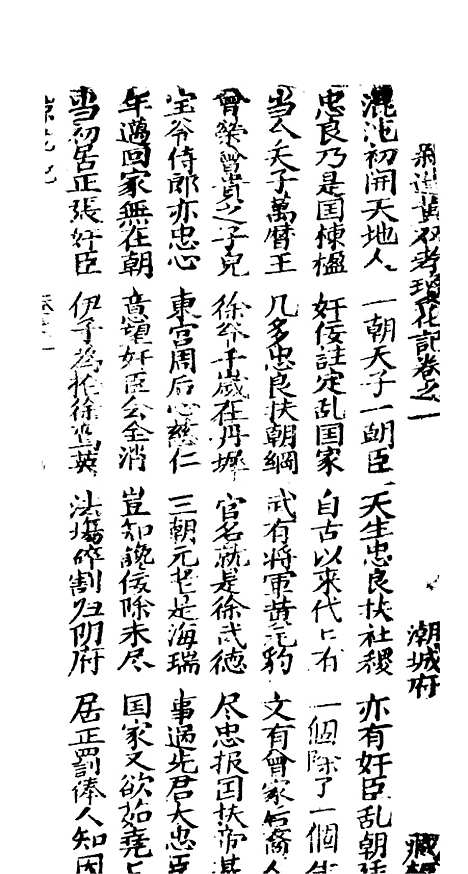 新造黃双孝瓊花記卷之一 潮城府 藏
混沌初開天地人 一朝天子一朝臣 天生忠良扶社稷 亦有奸臣乱朝廷
忠良乃是国棟楹 奸佞註定乱国家 自古以来代々有 一個除了一個生
当今天子萬曆王 几多忠良扶朝綱 武有將軍黃元豹 文有曾家后裔人
曾榮曾貴之子兒 徐爷千歲在丹墀 官名就是徐武德 尽忠报国扶帝基
宝爷侍郎亦忠心 東宮周后心慈仁 三朝元老是海瑞 事過先君大忠臣
年邁回家無在朝 意望奸臣会全消 豈知讒佞除未尽 国家又欲如堯
当初居正張奸臣 伊子為 徐 英 法場碎割归阴府 居正罰俸人知因